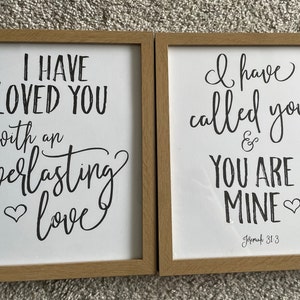 I HAVE
LOVED YOU
with an
everlasting
love
I have
called you
&
YOU ARE
MINE
Jeremiah 31:3